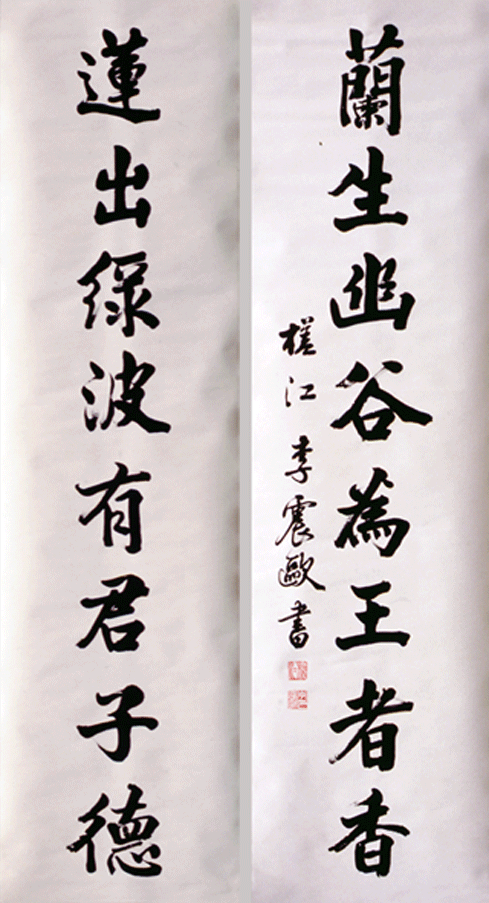 蘭生幽谷為王者香
槎江 李震歐書
蓮出綠波有君子德